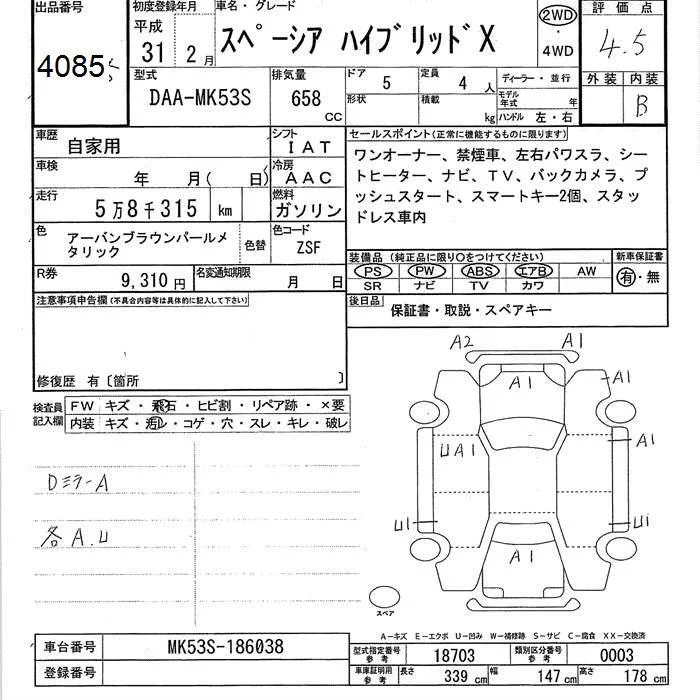 出品番号
4085
初度登録年月
平成
31 2月
車名・グレード
スペーシア ハイブリッドX
2WD
・
4WD
評価点
4.5
外装 内装
B
型式
DAA-MK53S
排気量
658
CC
ドア
5
定員
4 人
形状
積載
kg
ディーラー・並行
モデル年式 年
ハンドル 左・右
車歴
自家用
シフト
IAT
車検
年 月( 日)
冷房
AAC
走行
5万8千315 km
燃料
ガソリン
色
アーバンブラウンパールメ
タリック
色替
色コード
ZSF
R券
9,310円
名変通知期限
月 日
セールスポイント(正常に機能するものに限ります)
ワンオーナー、禁煙車、左右パワスラ、シー
トヒーター、ナビ、TV、バックカメラ、プ
ッシュスタート、スマートキー2個、スタッ
ドレス車内
装備品(純正品に限り○をつけてください)
PS PW ABS エアB AW
SR ナビ TV カワ
新車保証書
有・無
後日品
保証書・取説・スペアキー
注意事項申告欄(不具合内容等は具体的に記入して下さい)
修復歴 有〔箇所 〕
検査員
記入欄
FW キズ・飛石・ヒビ割・リペア跡・×要
内装 キズ・汚レ・コゲ・穴・スレ・キレ・破レ
Dミラ-A
各A.U
A2
A1
A1
A1
UA1
A1
U1
U1
A1
スペア
A-キズ E-エクボ U-凹み W-補修跡 S-サビ C-腐食 XX-交換済
車台番号
MK53S-186038
登録番号
型式指定番号
参考
18703
類別区分番号
参考
0003
車庫証明用
参考
長さ
339 cm
幅
147 cm
高さ
178 cm